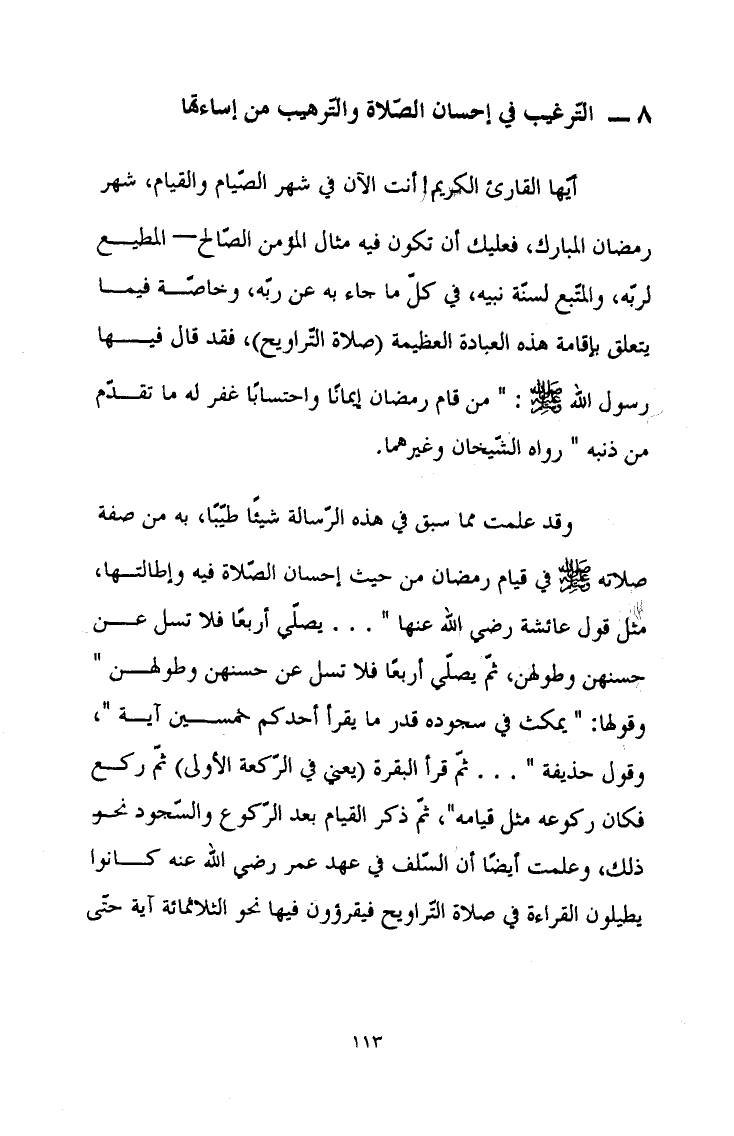 ٨ — التّرغيب في إحسان الصّلاة والتّرهيب من إساءتها
أيّها القارئ الكريم! أنت الآن في شهر الصّيام والقيام، شهر
رمضان المبارك، فعليك أن تكون فيه مثال المؤمن الصّالح — المطيع
لربّه، والمتّبع لسنّة نبيه، في كلّ ما جاء به عن ربّه، وخاصّة فيما
يتعلق بإقامة هذه العبادة العظيمة (صلاة التّراويح)، فقد قال فيها
رسول الله ﷺ : " من قام رمضان إيمانًا واحتسابًا غفر له ما تقدّم
من ذنبه " رواه الشّيخان وغيرهما.
وقد علمت مما سبق في هذه الرّسالة شيئًا طيّبًا، به من صفة
صلاته ﷺ في قيام رمضان من حيث إحسان الصّلاة فيه وإطالتها،
مثل قول عائشة رضي الله عنها " . . . يصلّي أربعًا فلا تسل عن
حسنهن وطولهن، ثمّ يصلّي أربعًا فلا تسل عن حسنهن وطولهن "
وقولها: " يمكث في سجوده قدر ما يقرأ أحدكم خمسين آية "،
وقول حذيفة " . . . ثمّ قرأ البقرة (يعني في الرّكعة الأولى) ثمّ ركع
فكان ركوعه مثل قيامه"، ثمّ ذكر القيام بعد الرّكوع والسّجود نحو
ذلك، وعلمت أيضًا أن السّلف في عهد عمر رضي الله عنه كانوا
يطيلون القراءة في صلاة التّراويح فيقرؤون فيها نحو الثلاثمائة آية حتّى
١١٣